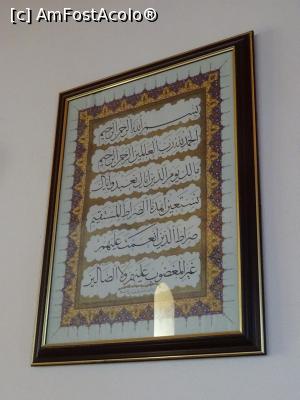 [c] AmFostAcolo®
بسم الله الرحمن الرحيم
الحمد لله رب العالمين الرحمن الرحيم
مالك يوم الدين اياك نعبد واياك
نستعين اهدنا الصراط المستقيم
صراط الذين انعمت عليهم
غير المغضوب عليهم ولا الضالين